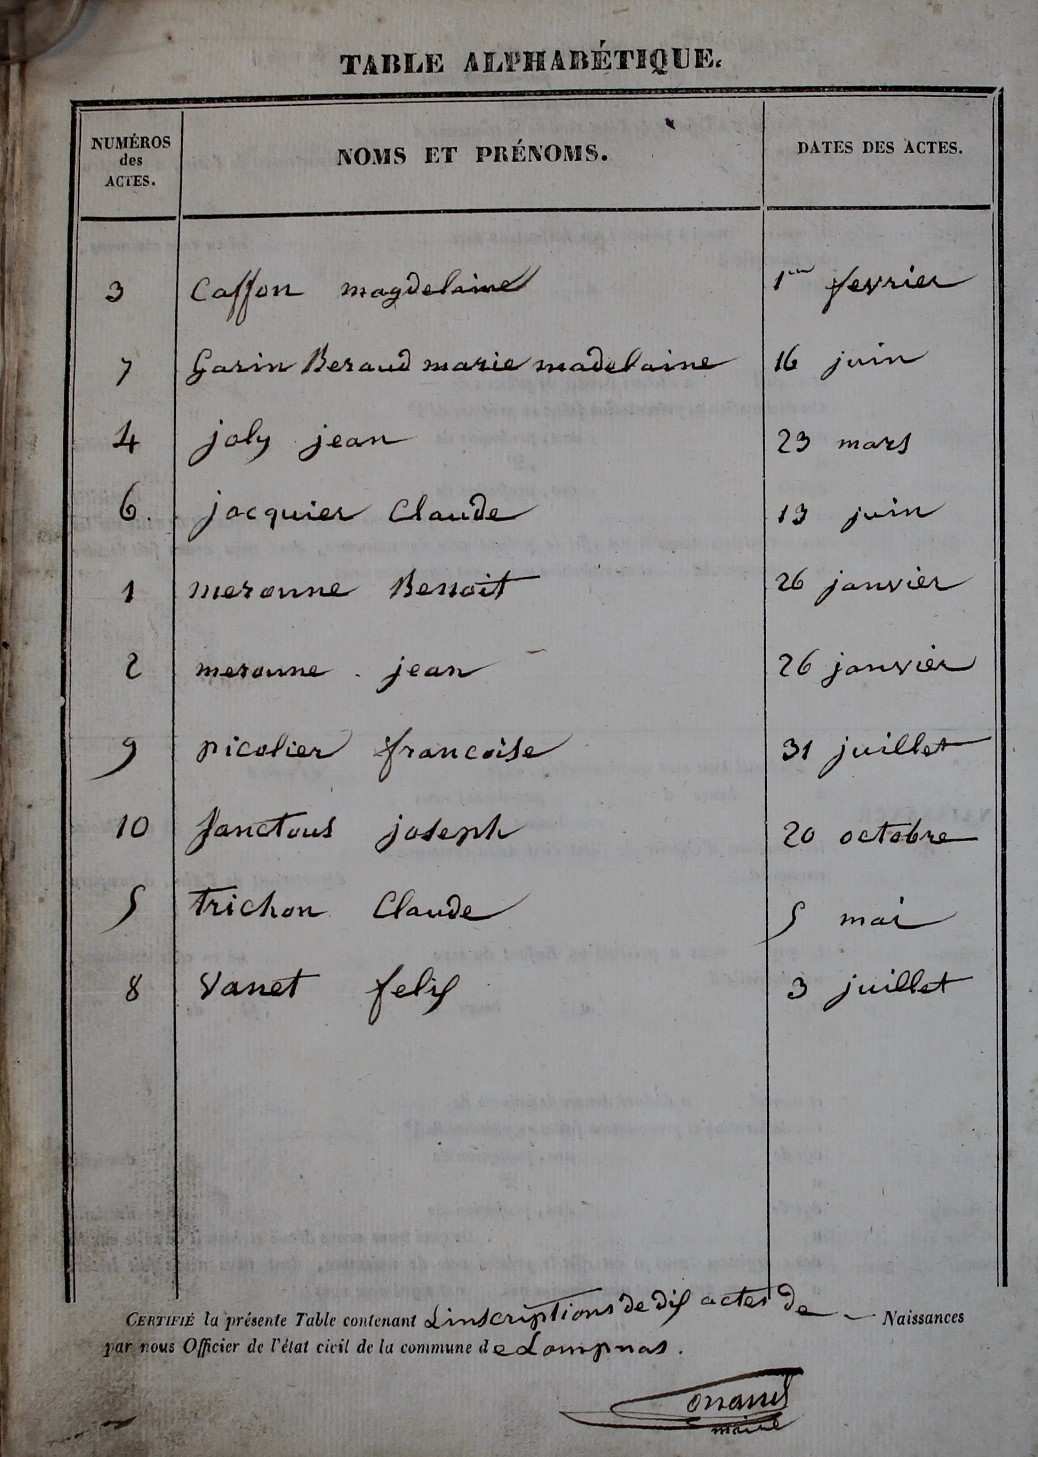 TABLE ALPHABÉTIQUE.
NUMÉROS des ACTES. NOMS ET PRÉNOMS. DATES DES ACTES.
3 Caffon magdelaine 1er fevrier
7 Garin Beraud marie madelaine 16 juin
4 joly jean 23 mars
6. jacquier Claude 13 juin
1 meraune Benoit 26 janvier
2 meraune jean 26 janvier
9 picolier francoise 31 juillet
10 Sanctous joseph 20 octobre
5 trichon Claude 5 mai
8 Vanet felix 3 juillet
CERTIFIÉ la présente Table contenant L'inscriptions de dix actes de Naissances
par nous Officier de l'état civil de la commune de Lompnas.
maire